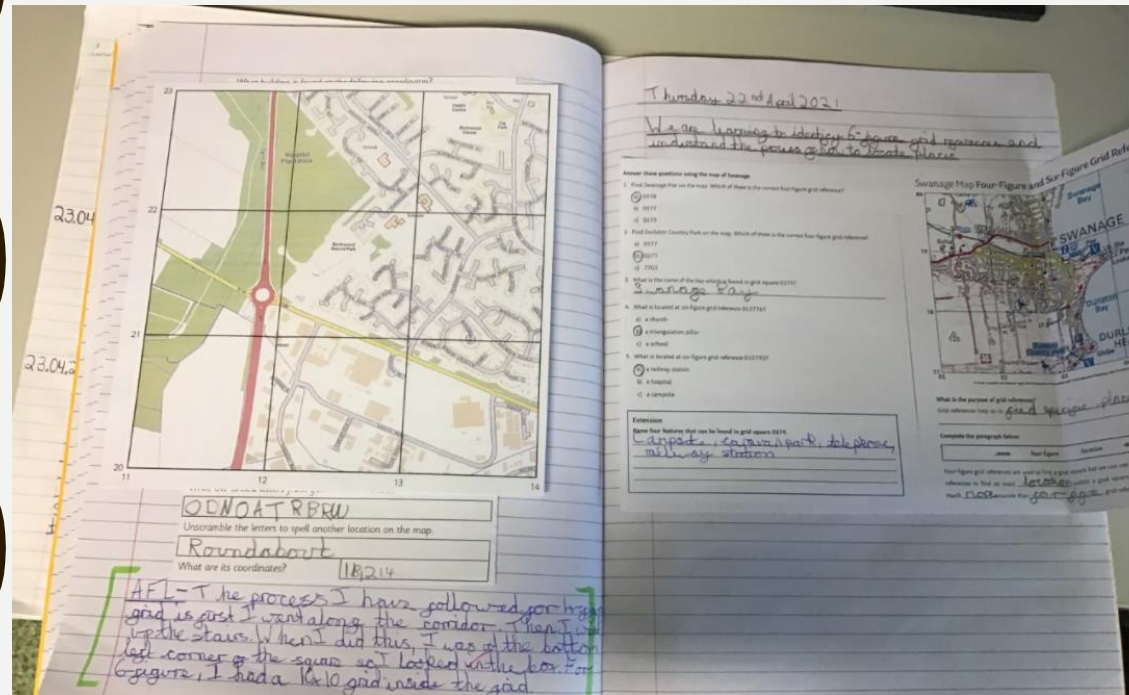 23.04
23.04.2
23
22
21
20
11
12
13
14
ODNOATRBRW
Unscramble the letters to spell another location on the map.
Roundabout
What are its coordinates?
18,214
AFL - The process I have followed for
grid is first I went along the corridor. Then I
up the stairs. When I did this, I was at the bottom
left corner of the square so I looked in the box. For
6-figure, I had a 10x10 grid inside the grid.
Thursday 22nd April 2021
We are learning to identify 6-figure grid references and
understand the process of how to locate places
Answer these questions using the map of Swanage
1. Find Swanage Pier on the map. Which of these is the correct four-figure grid reference?
a) 0378
b) 0377
c) 0279
2. Find Durlston Country Park on the map. Which of these is the correct four-figure grid reference?
a) 0377
b) 0277
c) 7703
3. What is the name of the bay which is found in grid square 0379?
Swanage Bay
4. What is located at six-figure grid reference
a) a church
b) a triangulation pillar
c) a school
5. What is located at six-figure grid reference
a) a railway station
b) a hospital
c) a campsite
Extension
Name four features that can be found in grid square
Carpark, caravan park, telephone,
railway station
Swanage Map Four-Figure and Six-Figure Grid Refe
Swanage
Bay
SWANAGE
Durlston
Bay
DURL
HE
What is the purpose of grid references?
Grid references help us to find specific place
Complete the paragraph below.
four-figure
location
Four-figure grid references are used to find a grid square but we can use
references to find an exact location within a grid square.
much more accurate than four-figure grid refe